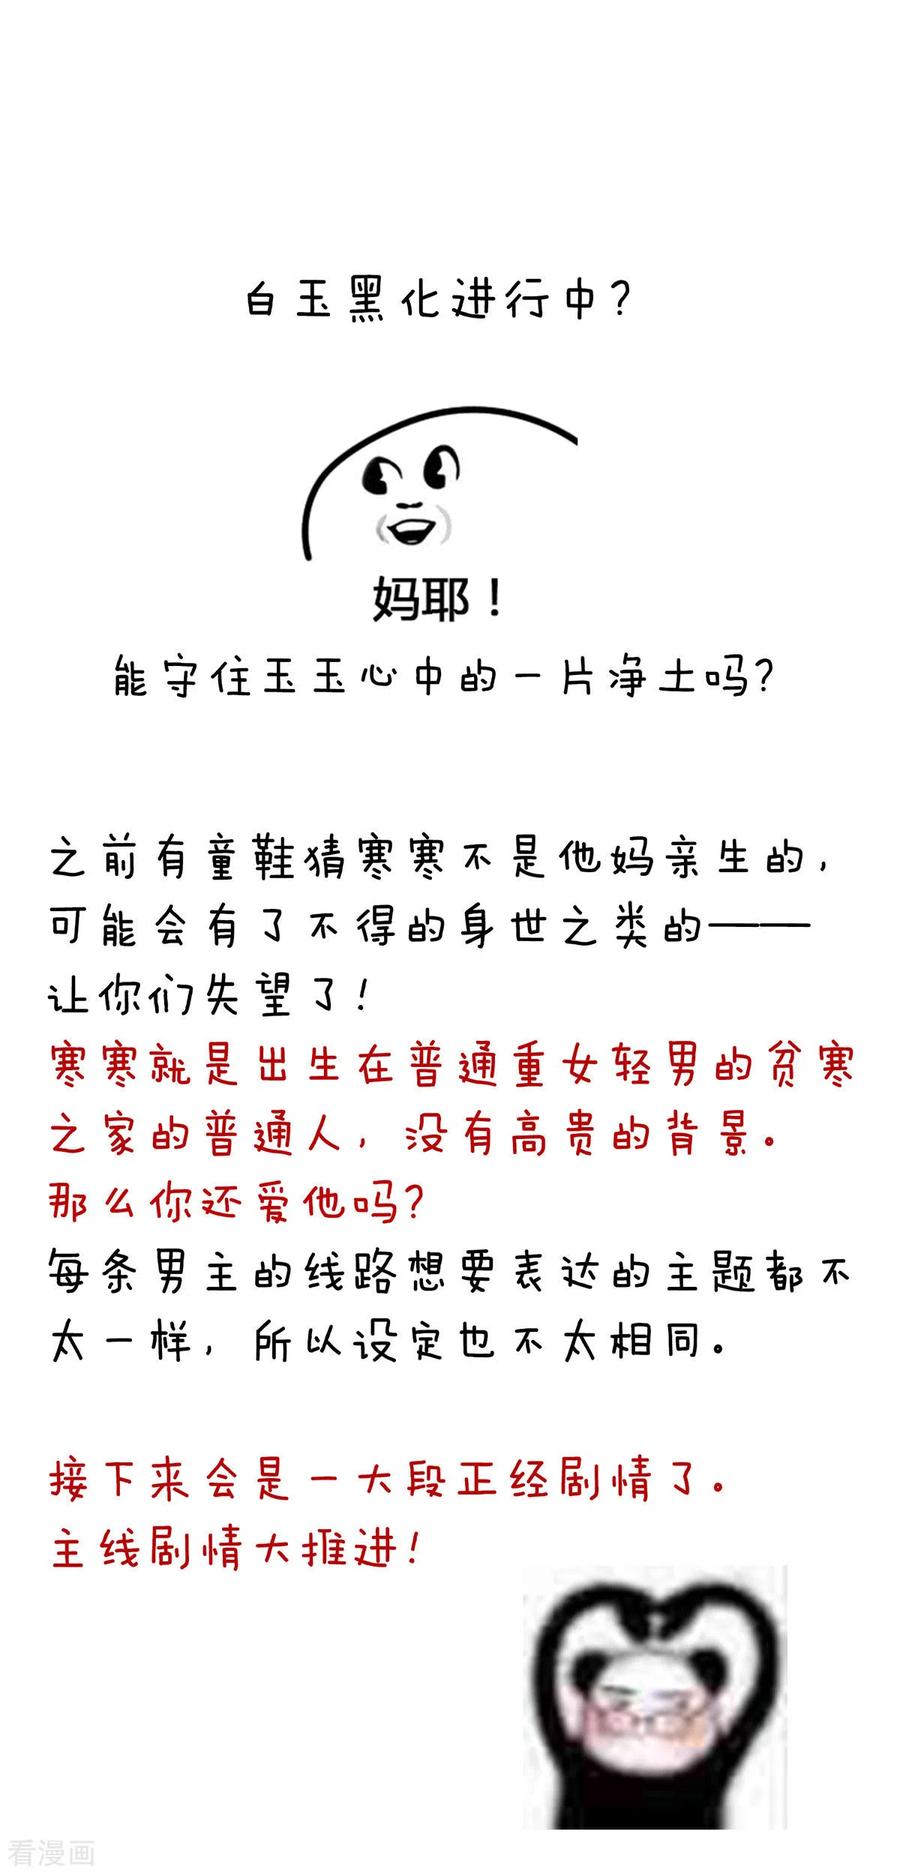 白玉黑化进行中?
妈耶!
能守住玉玉心中的一片净土吗?
之前有童鞋猜寒寒不是他妈亲生的,
可能会有了不得的身世之类的——
让你们失望了!
寒寒就是出生在普通重女轻男的贫寒
之家的普通人,没有高贵的背景。
那么你还爱他吗?
每条男主的线路想要表达的主题都不
太一样,所以设定也不太相同。
接下来会是一大段正经剧情了。
主线剧情大推进!
看漫画